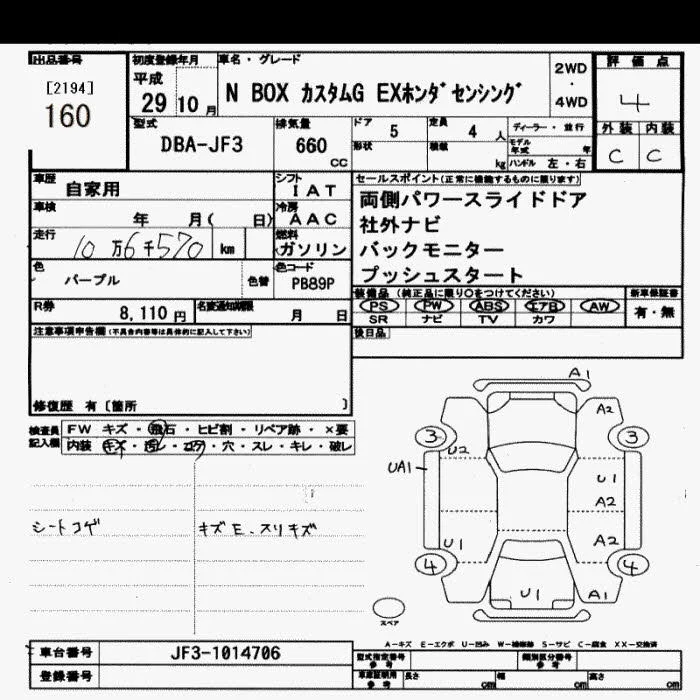 出品番号 初度登録年月 車名・グレード 評価点
[2194] 平成 2WD
160 29 10月 N BOX カスタムG EXホンダセンシング ・ 4
4WD
型式 排気量 ドア 5 定員 4 人 ディーラー・並行 外装 内装
DBA-JF3 660 形状 積載 モデル年式 年 C C
CC kg ハンドル 左・右
車歴 自家用 シフト IAT セールスポイント(正常に機能するものに限ります)
車検 年 月( 日) 冷房 AAC 両側パワースライドドア
走行 10万6千570 km 燃料 ガソリン 社外ナビ
色 パープル 色替 色コード PB89P バックモニター
プッシュスタート
R券 8,110円 名変通知期限 月 日 装備品(純正品に限り○をつけてください) 新車保証書
PS PW ABS エアB AW 有・無
SR ナビ TV カワ
注意事項申告欄(不具合内容等は具体的に記入して下さい) 後日品
修復歴 有〔箇所 〕
検査員記入欄 FW キズ・飛石・ヒビ割・リペア跡・×要
内装 キズ・汚レ・コゲ・穴・スレ・キレ・破レ
シートコゲ キズE、スリキズ
A1
A2
3 3
U2
UA1 U1
A2
U1 A2
4 4
U1 A1
スペア
A-キズ E-エクボ U-凹み W-補修跡 S-サビ C-腐食 XX-交換済
車台番号 JF3-1014706 型式指定番号 参考 類別区分番号 参考
登録番号 車庫証明用 参考 長さ cm 幅 cm 高さ cm